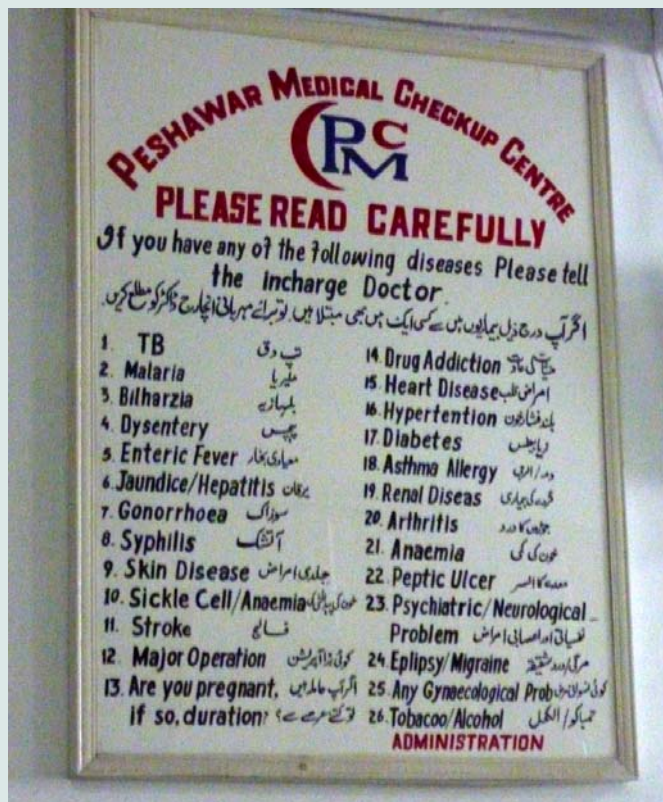 PESHAWAR MEDICAL CHECKUP CENTRE
PMC
PLEASE READ CAREFULLY
If you have any of the following diseases Please tell
the incharge Doctor.
اگر آپ درج ذیل بیماریوں میں سے کسی ایک میں بھی مبتلا ہیں تو برائے مہربانی انچارج ڈاکٹر کو مطلع کریں.
1. TB تپ دق
2. Malaria ملیریا
3. Bilharzia
4. Dysentery پیچس
5. Enteric Fever میعادی بخار
6. Jaundice/Hepatitis یرقان
7. Gonorrhoea سوزاک
8. Syphilis آتشک
9. Skin Disease جلدی امراض
10. Sickle Cell/Anaemia
11. Stroke فالج
12. Major Operation کوئی بڑا آپریشن
13. Are you pregnant, اگر آپ حاملہ ہیں
if so, duration? تو کتنے عرصے سے؟
14. Drug Addiction
15. Heart Disease امراض قلب
16. Hypertention بلند فشار خون
17. Diabetes ذیابیطس
18. Asthma Allergy دمہ/الرجی
19. Renal Diseas گردے کی بیماری
20. Arthritis جوڑوں کا درد
21. Anaemia خون کی کمی
22. Peptic Ulcer معدے کا السر
23. Psychiatric/Neurological
Problem نفسیاتی اور اعصابی امراض
24. Eplipsy/Migraine
25. Any Gynaecological Prob
26. Tobacoo/Alcohol تمباکو/الکحل
ADMINISTRATION